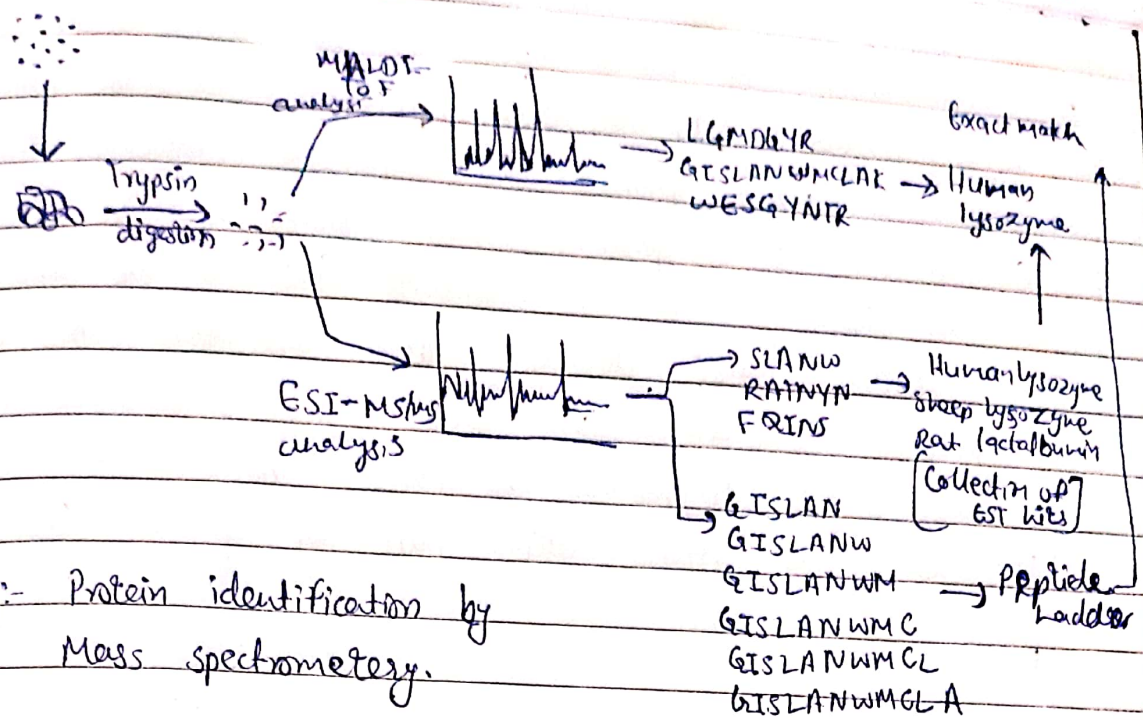 MALDI-
TOF
analysis
Exact match
LGMDGYR
GISLANWMCLAK
WESGYNTR
Human
lysozyme
Trypsin
digestion
ESI-MS/MS
analysis
SLANW
RAINYN
FQINS
Human lysozyme
Sheep lysozyme
Rat lactalbumin
[Collectin of
EST hits]
GISLAN
GISLANW
GISLANWM
GISLANWMC
GISLANWMCL
GISLANWMCLA
Peptide
Ladder
:- Protein identification by
Mass spectrometery.